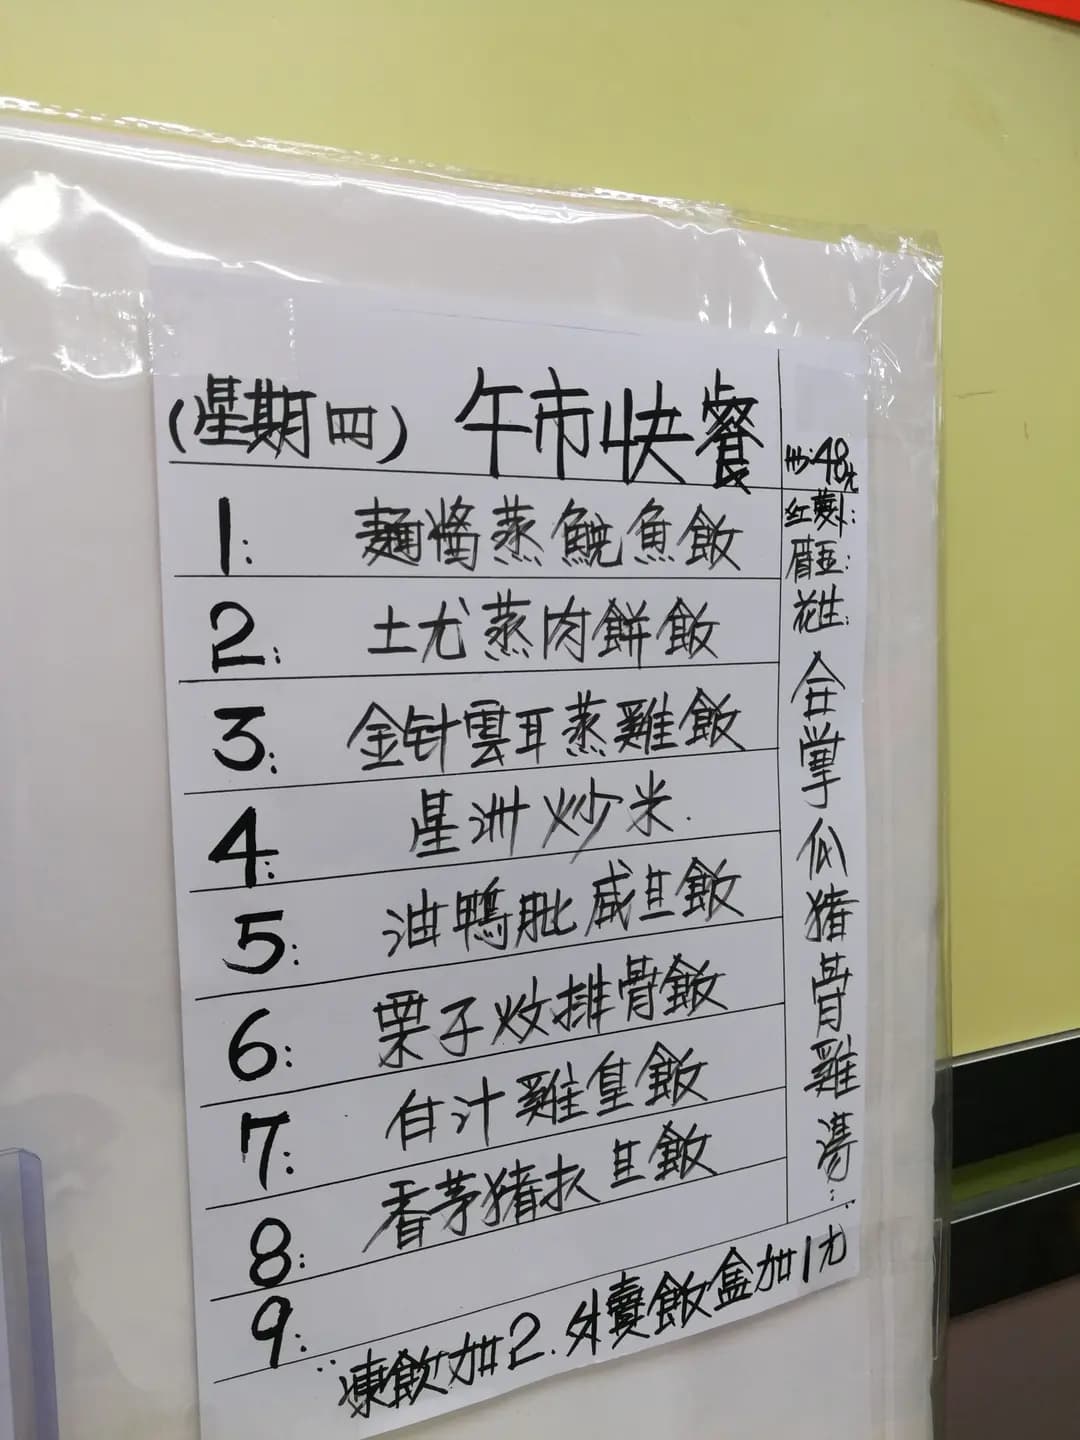 (星期四) 午市快餐
1: 麵醬蒸鯇魚飯
2: 土尤蒸肉餅飯
3: 金针雲耳蒸雞飯
4: 星洲炒米
5: 油鴨肶咸旦飯
6: 栗子炆排骨飯
7: 白汁雞皇飯
8: 香茅猪扒旦飯
9:
凍飲加2.外賣飯盒加1元
48元
红蘿卜:
眉豆:
花生:
合掌瓜猪骨雞湯: